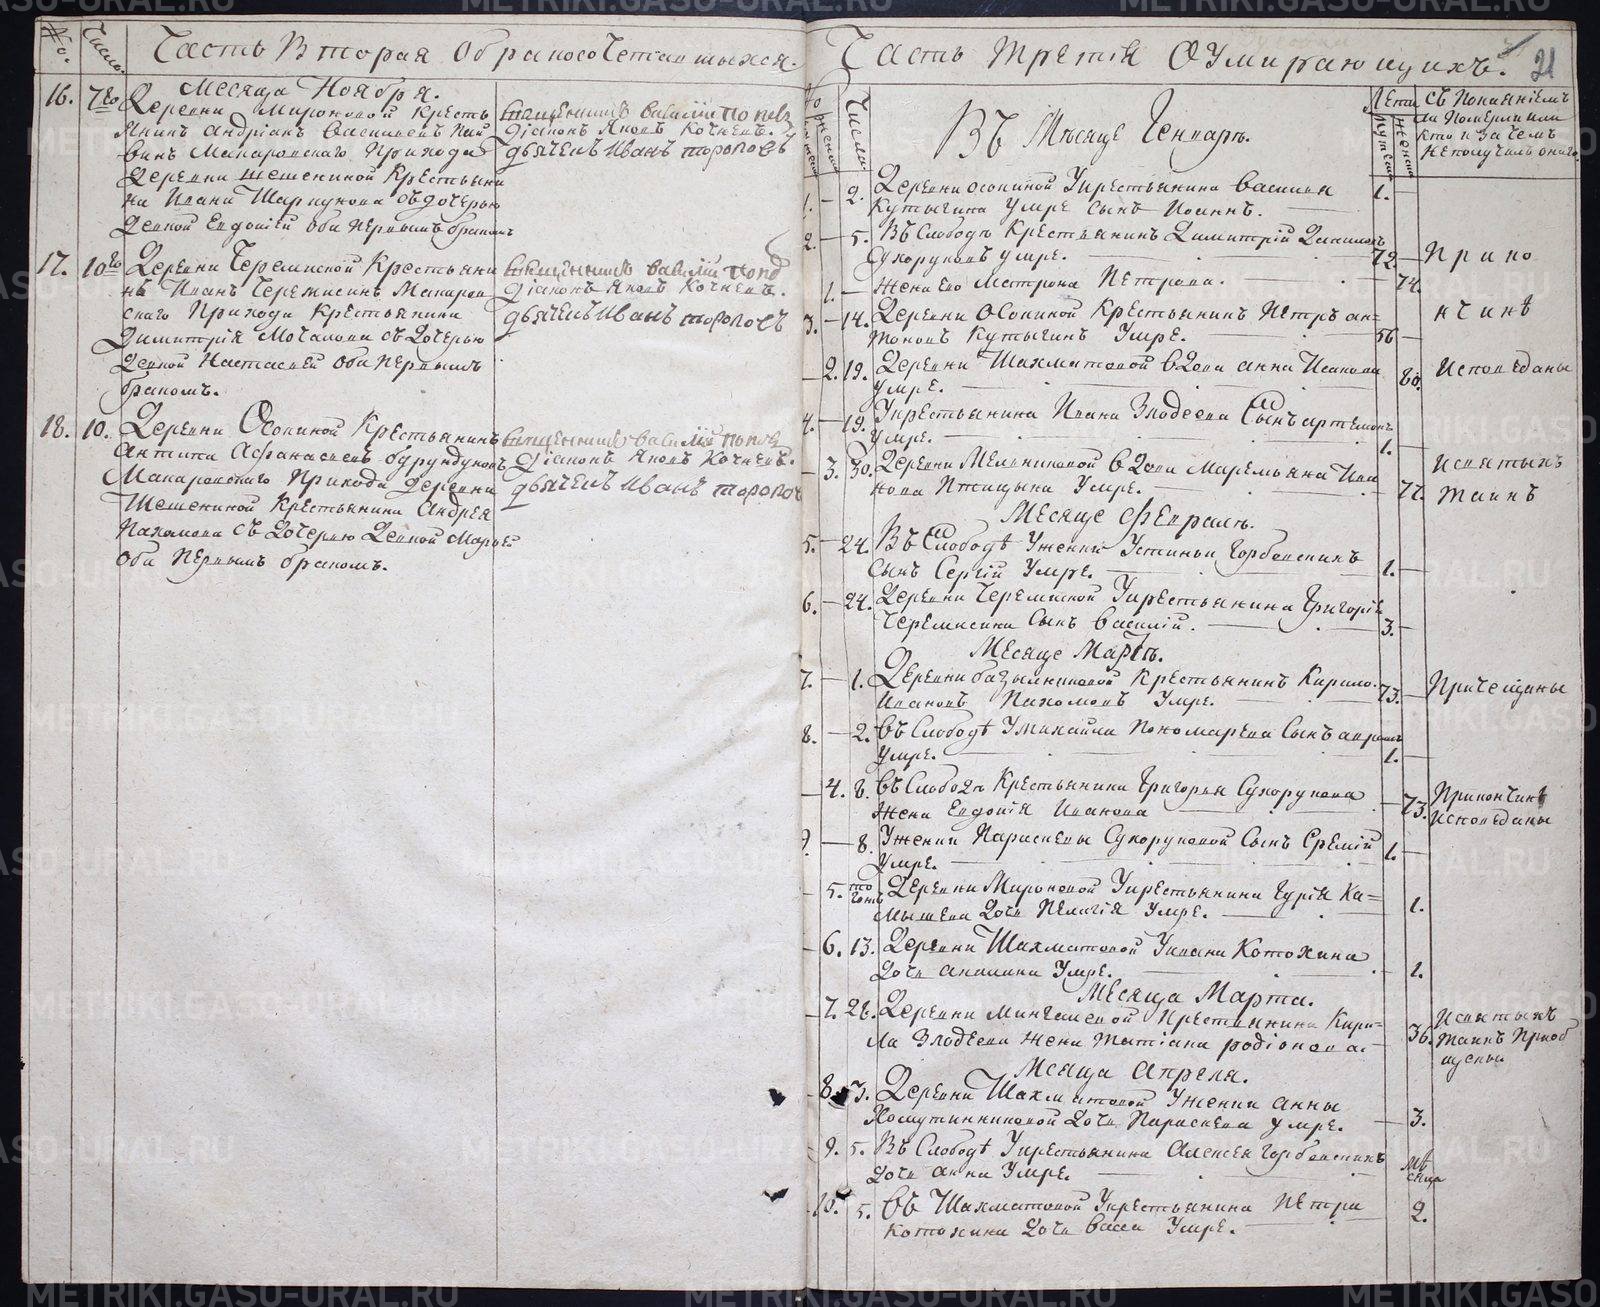 №.
Числа.
Часть Вторая Обракосочетавшихся.
Месяца Ноября.
16. 7го Деревни Мироновой кресть
янинъ андрiанъ Васильевъ
Макаровскаго Прихода
Деревни шешениной Крестьяни
на Ивана Шарпунова съ дочерью
Девкой Евдокiей Оба Первымъ бракомъ
Священникъ василiй поповъ
дiаконъ Яковъ Кочневъ.
дьячекъ Иванъ тороповъ
17. 10го Деревни Черемиской Крестьяни
нъ Иванъ Черемисинъ Макаров
скаго Прихода Крестьянина
Димитрiя Мочалова съ Дочерью
Девкой Настасьей Оба Первымъ
бракомъ.
Священникъ василiй попов
дiаконъ Яковъ Кочневъ.
дьячекъ Иванъ тороповъ
18. 10. Деревни Осокиной Крестьянинъ
Антипа Афанасьевъ бурундуковъ
Макаровскаго Прихода Деревни
Шешениной Крестьянина Андрея
Пахомова съ Дочерью Девкой Марьей
Оба Первымъ бракомъ.
Священникъ василiй поповъ
дiаконъ Яковъ Кочневъ.
дьячекъ Иванъ торопов
Часть третiя Оумирающихъ.
21
Числа
Въ Месяце Генваръ.
Лета
Мужска
Женска
съ Покаянiемъ
ли Померли или
кто и За чемъ
Неполучилъ онаго
1. 2. Деревни осокиной Укрестьянина василья
Кутыгина Умре сынъ Иоаннъ. 1.
2. 5. Въ Слободѣ Крестьянинъ Димитрiй
Сухоруковъ умре. 72. Прико
1. Жена Его Матрона Петрова. 74.
3. 14. Деревни Осокиной Крестьянинъ Петръ ан=
тоновъ Кутыгинъ Умре. 56 нчинѣ
2. 19. Деревни Шахматовой вдова анна Исакова
Умре. 80. Исповеданы
4. 19. Укрестьянина Ивана Злодеева Сынъ артемонъ
Умре. 1.
3. 30. Деревни Мельниковой вдова Маремьяна Ива
нова Птицына Умре. 77. Исвятыхъ
таинъ
Месяце Февраль.
5. 24. Въ Слободѣ Уженки Устиньи Горбовскихъ
Сынъ Сергiй Умре. 1.
6. 24. Деревни Черемиской Укрестьянина Григорiя
Черемисина Сынъ Василiй. 3.
Месяце Мартъ.
7. 1. Деревни базылниковой Крестьянинъ Кирило
Ивановъ Пахомовъ Умре. 73. Причещаны
8. 2. Въ Слободѣ Умихаила Пономарева Сынъ
Умре. 1.
4. 8. въ Слободѣ Крестьянина Григорья Сухорукова
Жена Евдокiя Иванова 73. Приконьчинѣ
Исповеданы
9. 8. Уженки Парасковьи Сухоруковой Сынъ Еремiй
Умре. 1.
5. Деревни Мироновой Укрестьянина Гурiя Ка=
мышева Дочь Пелагiя Умре. 1.
6. 13. Деревни Шахматовой Уивана Котохина
Дочь акилина Умре. 1.
Месяца Марта.
7. 28. Деревни Мингалевой Крестьянина Кири=
ла Злодеева жена татiана родiонова. 36. Исвятыхъ
Таинъ Приоб
щены
Мсяца апреля.
8. 3. Деревни Шахматовой Уженки анны
Хомутинниковой Дочь Параскева умре. 3.
9. 5. Въ Слободѣ Укрестьянина Алексея горбовскихъ
Дочь анна Умре. мѣ
сяца
10. 5. въ Шахматовой Укрестьянина Петра
Котохина Дочь васса Умре. 2.
METRIKI.GASO-URAL.RU